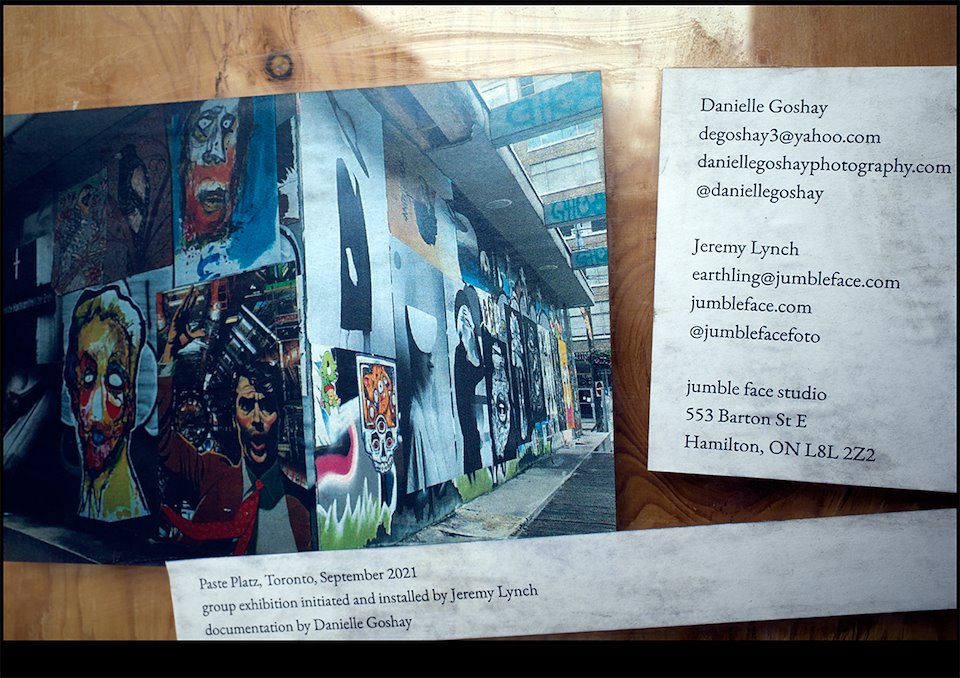 Danielle Goshay
degoshay3@yahoo.com
daniellegoshayphotography.com
@daniellegoshay
Jeremy Lynch
earthling@jumbleface.com
jumbleface.com
@jumblefacefoto
jumble face studio
553 Barton St E
Hamilton, ON L8L 2Z2
Paste Platz, Toronto, September 2021
group exhibition initiated and installed by Jeremy Lynch
documentation by Danielle Goshay